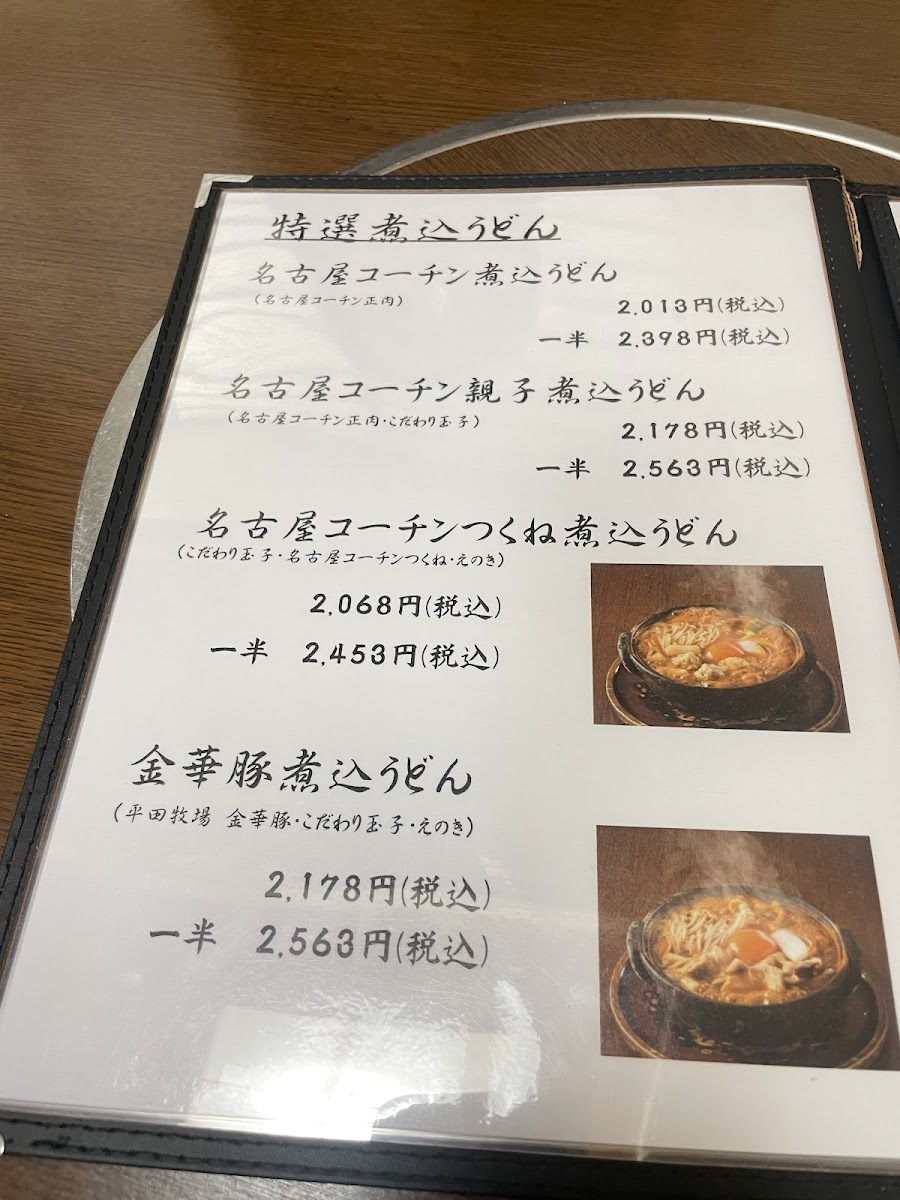 特選煮込うどん
名古屋コーチン煮込うどん
(名古屋コーチン正肉)
2,013円(税込)
一半 2,398円(税込)
名古屋コーチン親子煮込うどん
(名古屋コーチン正肉・こだわり玉子)
2,178円(税込)
一半 2,563円(税込)
名古屋コーチンつくね煮込うどん
(こだわり玉子・名古屋コーチンつくね・えのき)
2,068円(税込)
一半 2,453円(税込)
金華豚煮込うどん
(平田牧場 金華豚・こだわり玉子・えのき)
2,178円(税込)
一半 2,563円(税込)